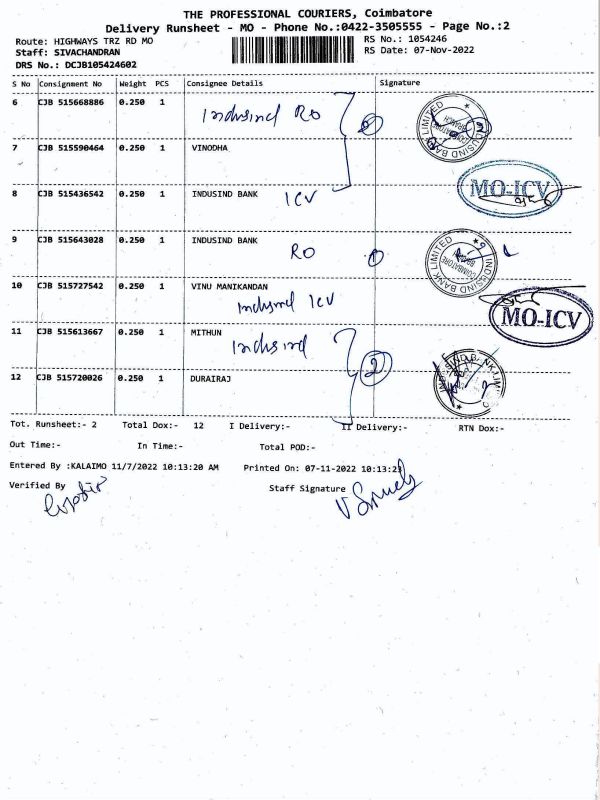 THE PROFESSIONAL COURIERS, Coimbatore
Delivery Runsheet - MO - Phone No.:0422-3505555 - Page No.:2
Route: HIGHWAYS TRZ RD MO RS No.: 1054246
Staff: SIVACHANDRAN RS Date: 07-Nov-2022
DRS No.: DCJB105424602
S No Consignment No Weight PCS Consignee Details Signature
6 CJB 515668886 0.250 1 Indusind RO
INDUSIND BANK LIMITED COIMBATORE BRANCH
7 CJB 515590464 0.250 1 VINODHA
8 CJB 515436542 0.250 1 INDUSIND BANK ICV
MO-ICV
9 CJB 515643028 0.250 1 INDUSIND BANK
RO
INDUSIND BANK LIMITED COIMBATORE
10 CJB 515727542 0.250 1 VINU MANIKANDAN
Indusind ICV
MO-ICV
11 CJB 515613667 0.250 1 MITHUN
Indusind
2
12 CJB 515720026 0.250 1 DURAIRAJ
Tot. Runsheet:- 2 Total Dox:- 12 I Delivery:- II Delivery:- RTN Dox:-
Out Time:- In Time:- Total POD:-
Entered By :KALAIMO 11/7/2022 10:13:20 AM Printed On: 07-11-2022 10:13:23
Verified By Staff Signature